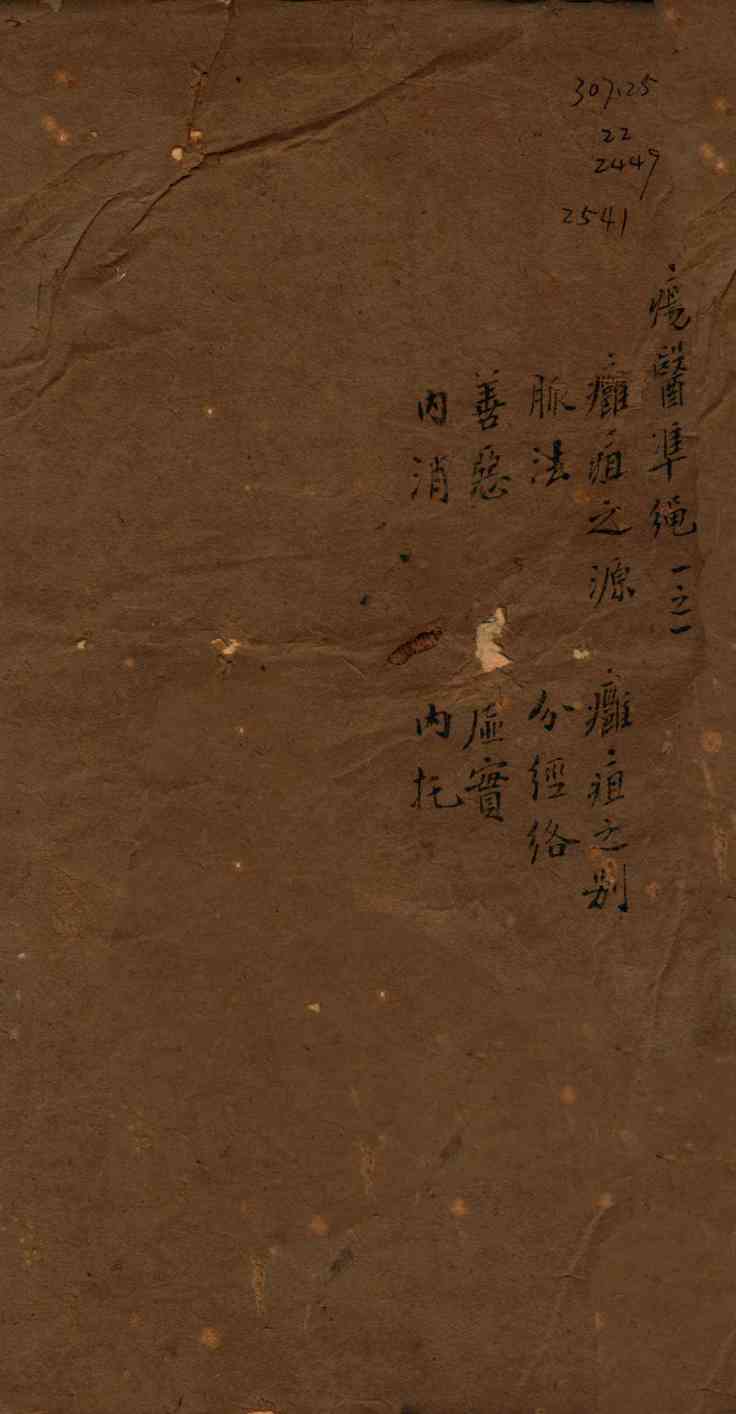 307.25
22
2449
2541
瘍醫準繩一之一
癰疽之源 癰疽之别
脈法 分經絡
善惡 虛實
内消 内托